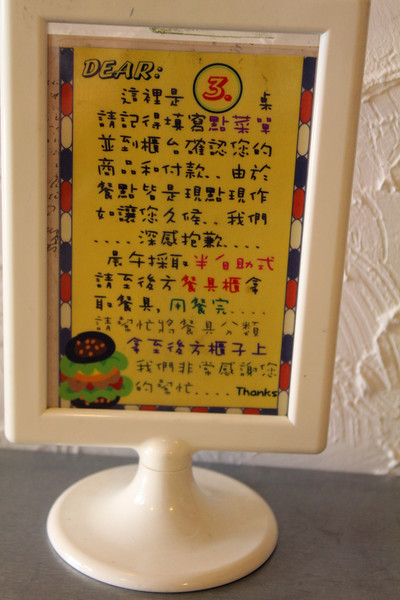 DEAR:
這裡是 3. 桌
請記得填寫點菜單
並到櫃台確認您的
商品和付款.. 由於
餐點皆是現點現作
如讓您久候.. 我們
....深感抱歉....
晨午採取半自助式
請至後方餐具櫃拿
取餐具,用餐完....
請幫忙將餐具分類
拿至後方櫃子上
我們非常感謝您
的幫忙.... Thanks